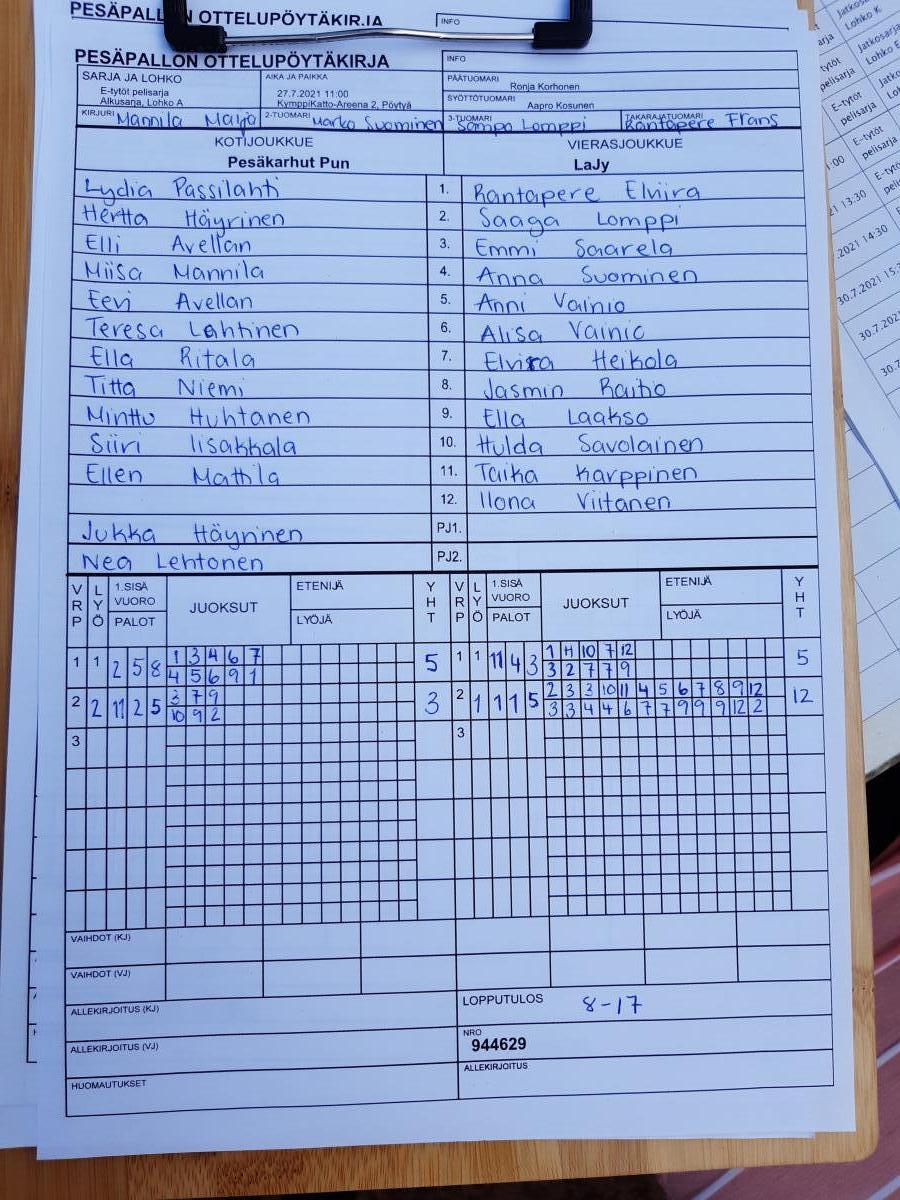 PESÄPALL N OTTELUPÖYTÄKIRJA
INFO
PESÄPALLON OTTELUPÖYTÄKIRJA
INFO
SARJA JA LOHKO
E-tytöt pelisarja
Alkusarja, Lohko A
AIKA JA PAIKKA
27.7.2021 11:00
KymppiKatto-Areena 2, Pöytyä
PÄÄTUOMARI
Ronja Korhonen
SYÖTTÖTUOMARI
Aapro Kosunen
KIRJURI Mannila Maija
2-TUOMARI Marko Suominen
3-TUOMARI Sampo Lomppi
TAKARAJATUOMARI Rantapere Frans
KOTIJOUKKUE
Pesäkarhut Pun
VIERASJOUKKUE
LaJy
Lydia Passilahti 1. Rantapere Elviira
Hertta Häyrinen 2. Saaga Lomppi
Elli Avellan 3. Emmi Saarela
Miisa Mannila 4. Anna Suominen
Eevi Avellan 5. Anni Vainio
Teresa Lahtinen 6. Alisa Vainio
Ella Ritala 7. Elvira Heikola
Titta Niemi 8. Jasmin Raitio
Minttu Huhtanen 9. Ella Laakso
Siiri Iisakkala 10. Hulda Savolainen
Ellen Mattila 11. Taika Karppinen
12. Ilona Viitanen
Jukka Häyrinen PJ1.
Nea Lehtonen PJ2.
VRP LYÖ 1.SISÄ VUORO PALOT JUOKSUT ETENIJÄ LYÖJÄ YHT VRP LYÖ 1.SISÄ VUORO PALOT JUOKSUT ETENIJÄ LYÖJÄ YHT
1 1 2 5 8 1 3 4 6 7 5 1 1 11 4 3 1 11 10 7 12 5
4 5 6 9 1 3 2 7 7 9
2 2 11 2 5 3 7 9 3 2 1 1 1 5 2 3 3 10 11 4 5 6 7 8 9 12 12
10 9 2 3 3 4 4 6 7 7 9 9 9 12 2
3 3
VAIHDOT (KJ)
VAIHDOT (VJ)
ALLEKIRJOITUS (KJ)
LOPPUTULOS 8-17
ALLEKIRJOITUS (VJ)
NRO
944629
HUOMAUTUKSET
ALLEKIRJOITUS